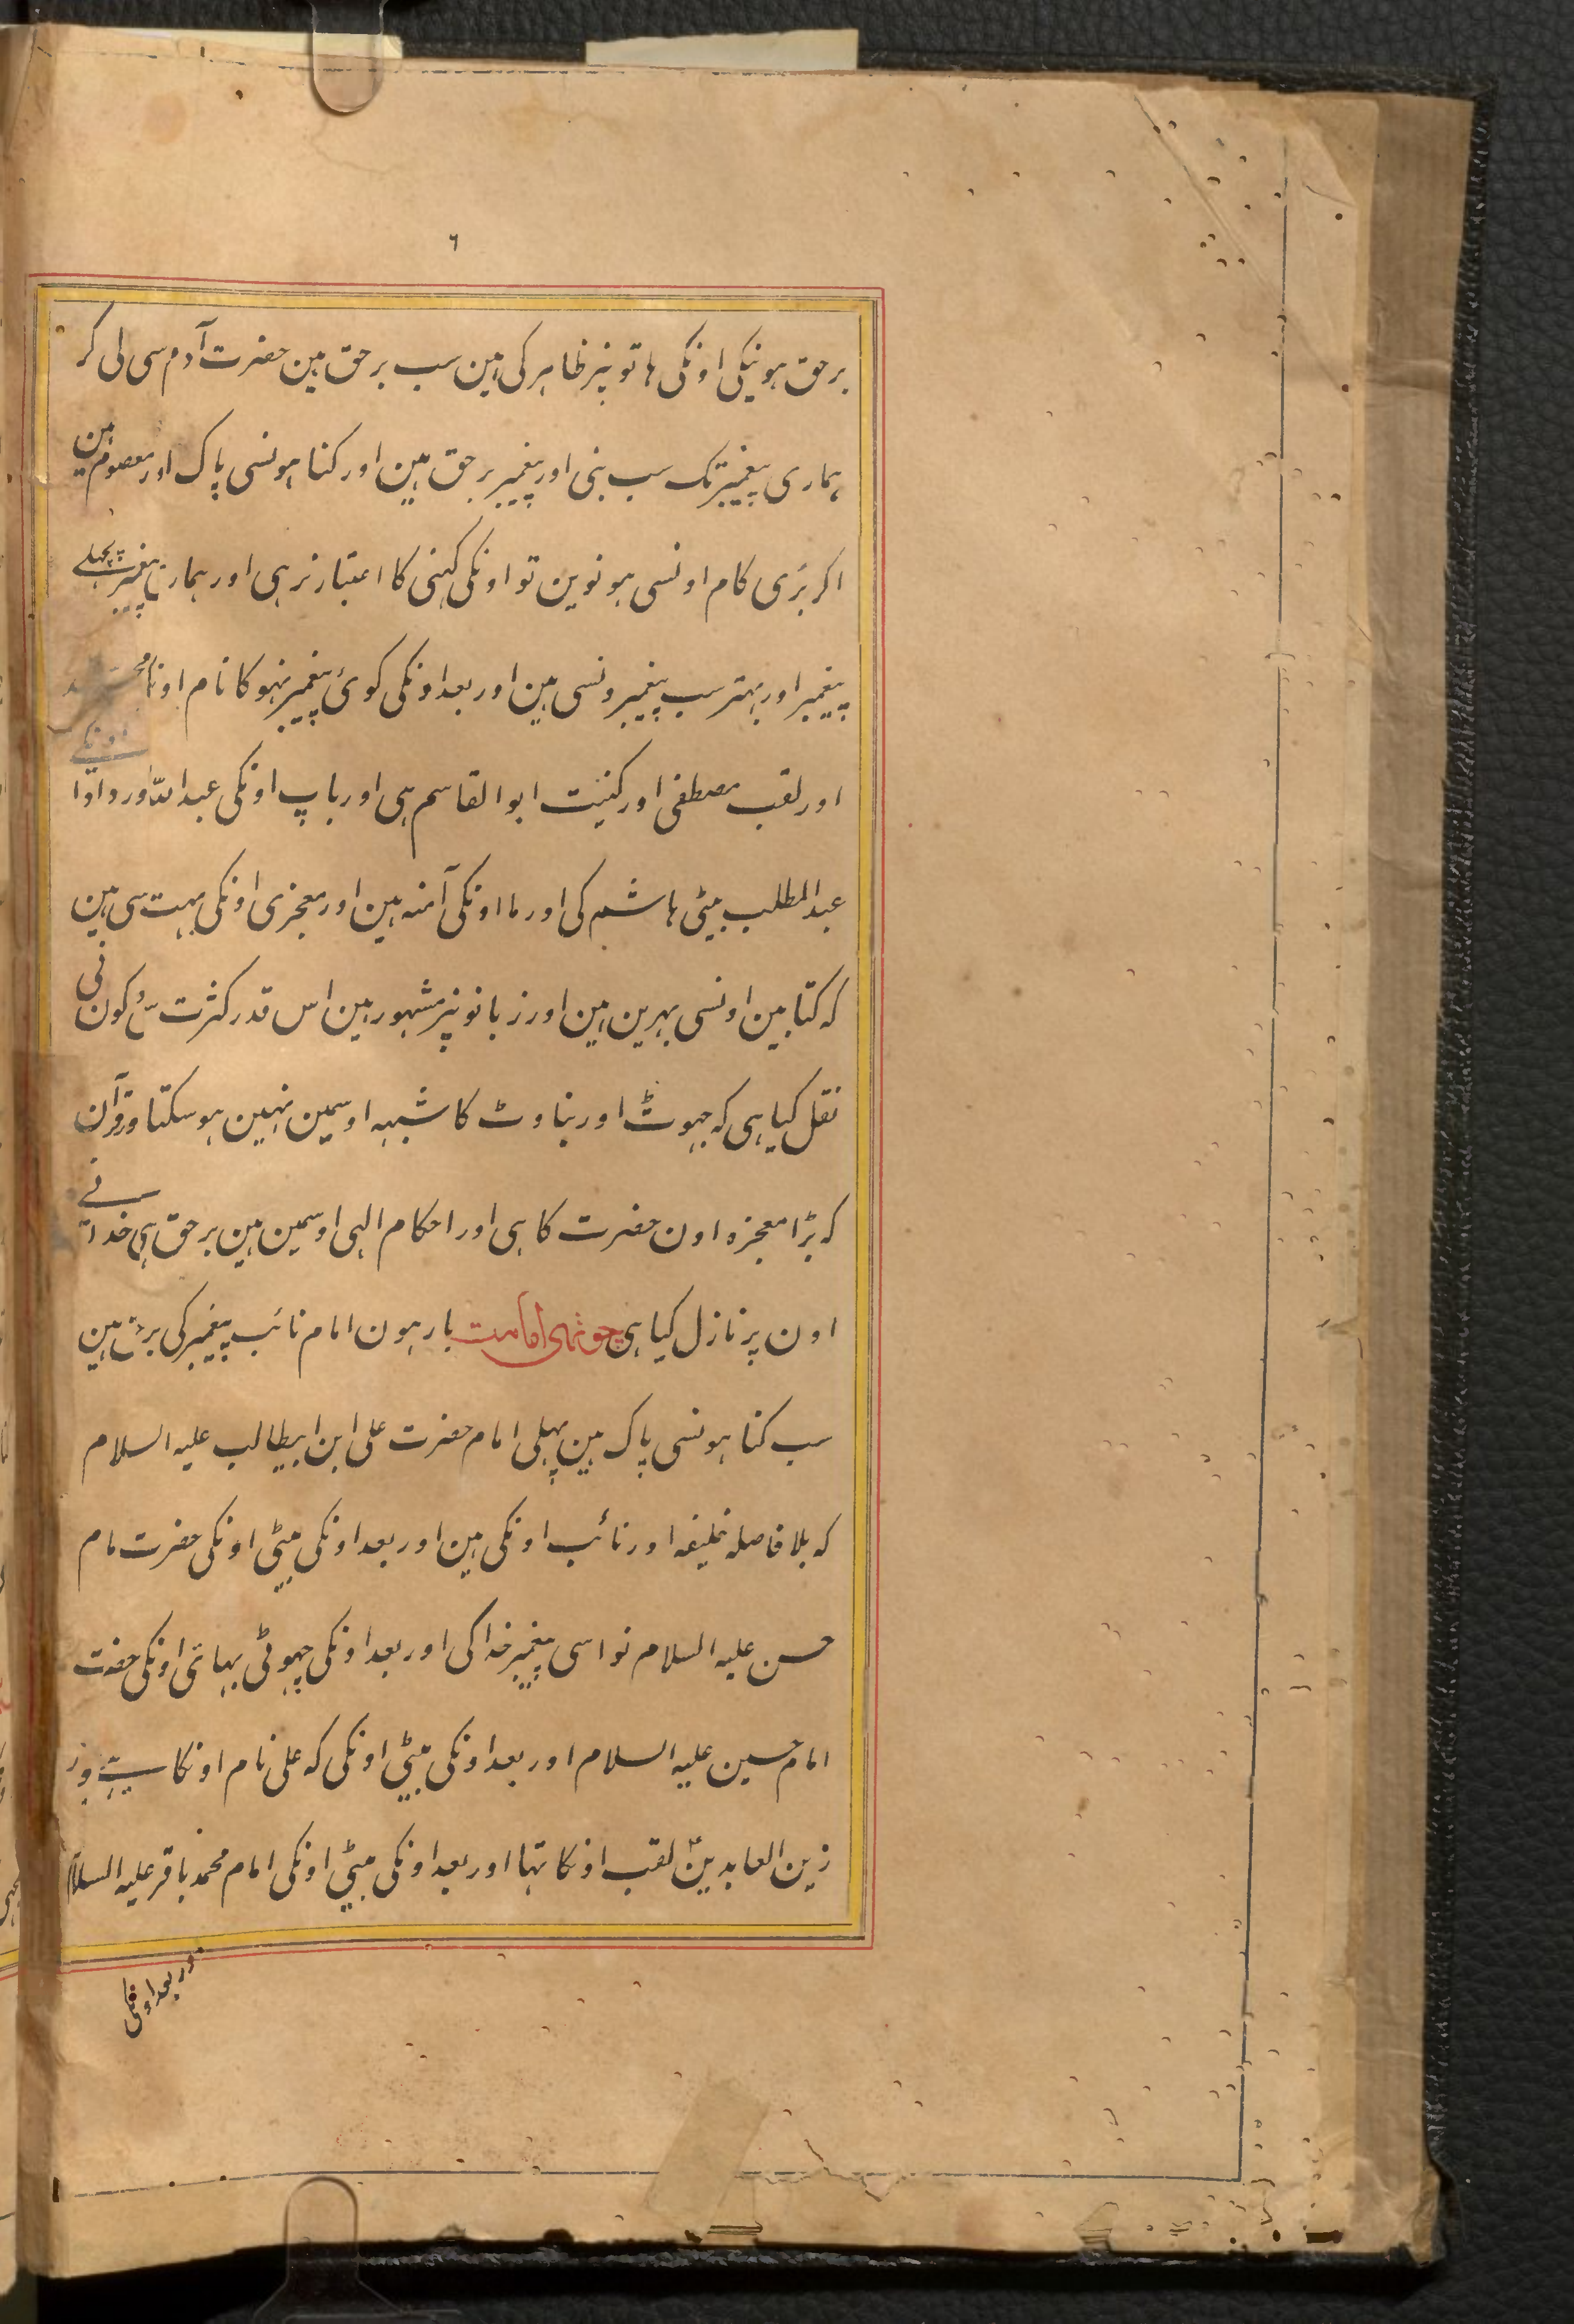 ٦
برحق ہونیکی اونکی ہاتونپر ظاہر کی ہین سب برحق ہین حضرت آدم سی لی کر
ہماری پیغمبر تک سب نبی اور پیغمبر برحق ہین اور کناہونسی پاک اور معصوم ہین
اکر بُری کام اونسی ہونوین تو اونکی کہنی کا اعتبار نرہی اور ہماری پیغمبر پچہلے
پیغمبر اور بہتر سب پیغمبرونسی ہین اور بعد اونکی کوئ پیغمبر نہوکا نام اونکا محمد
اور لقب مصطفی اور کنیت ابو القاسم ہی اور باپ اونکی عبد اللہ اور دادا اونکے
عبد المطلب بیٹی ہاشم کی اور ما اونکی آمنہ ہین اور معجزی اونکی بہت سی ہین
کہ کتابین اونسی بہرین ہین اور زبانونپر مشہور ہین اس قدر کثرت سی لوکون نی
نقل کیا ہی کہ جہوٹ اور بناوٹ کا شبہہ اوسمین نہین ہو سکتا اور قرآن
کہ بڑا معجزہ اون حضرت کا ہی اور احکام الہی اوسمین ہین برحق ہی خدا نے
اون پر نازل کیا ہی چوتہی امامت بارہون امام نائب پیغمبر کی برحق ہین
سب کناہونسی پاک ہین پہلی امام حضرت علی ابن ابیطالب علیہ السلام
کہ بلا فاصلہ خلیفہ اور نائب اونکی ہین اور بعد اونکی بیٹی اونکی حضرت امام
حسن علیہ السلام نواسی پیغمبر خدا کی اور بعد اونکی چہوٹی بہائی اونکی حضرت
امام حسین علیہ السلام اور بعد اونکی بیٹی اونکی کہ علی نام اونکا ہی اور
زین العابدین لقب اونکا تہا اور بعد اونکی بیٹی اونکی امام محمد باقر علیہ السلام
اور بعد اونکی